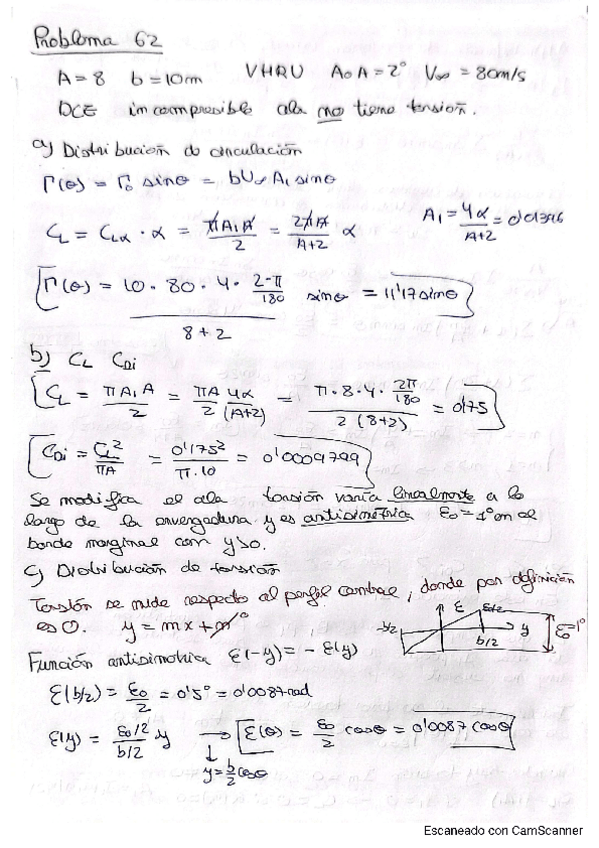 Problema 62
A = 8 b = 10m VHRU AoA = 2° V∞ = 80m/s
DCE incompresible ala no tiene torsión.
a) Distribución de circulación
Γ(θ) = Γ0 sinθ = bU∞ A1 sinθ
A1 = 4α/(A+2) = 0'01396
CL = CLα · α = πA1A/2 = 2πA/(A+2) α
Γ(θ) = 10 · 80 · 4 · 2·π/180 / (8+2) sinθ = 11'17 sinθ
b) CL CDi
CL = πA1A/2 = πA/2 4α/(A+2) = π·8·4·2π/180 / 2(8+2) = 0'175
CDi = CL²/πA = 0'175²/π·10 = 0'0009799
Se modifica el ala torsión varía linealmente a lo
largo de la envergadura y es antisimétrica ε0 = 1° en el
borde marginal con y>0.
c) Distribución de torsión
Torsión se mide respecto al perfil central, donde por definición
es 0. y = mx + n 0
ε ε0/2 y b/2 ε0=1°
Función antisimétrica ε(-y) = - ε(y)
ε(b/2) = ε0/2 = 0'5° = 0'0087 rad
ε(y) = ε0/2 / b/2 y → ε(θ) = ε0/2 cosθ = 0'0087 cosθ
y = b/2 cosθ
Escaneado con CamScanner